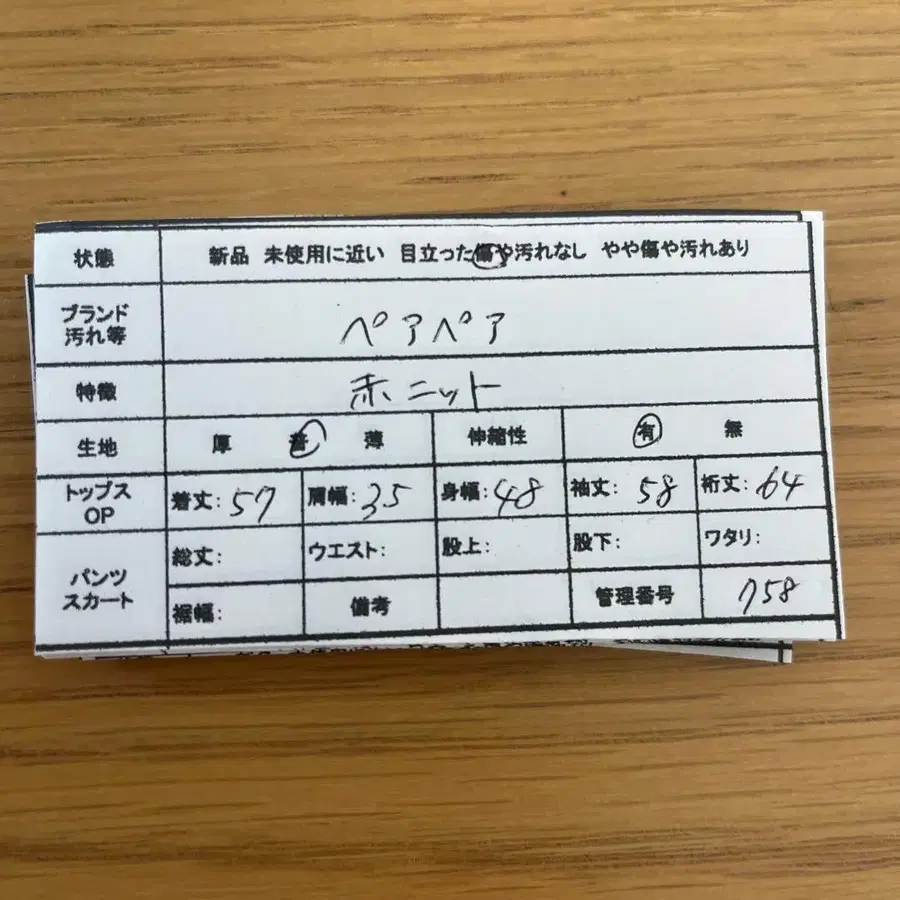 状態 新品 未使用に近い 目立った傷や汚れなし やや傷や汚れあり
ブランド
汚れ等
ペアペア
特徴 赤ニット
生地 厚 普 薄 伸縮性 有 無
トップス
OP
着丈:57 肩幅:35 身幅:48 袖丈:58 裄丈:64
パンツ
スカート
総丈: ウエスト: 股上: 股下: ワタリ:
裾幅: 備考 管理番号 758